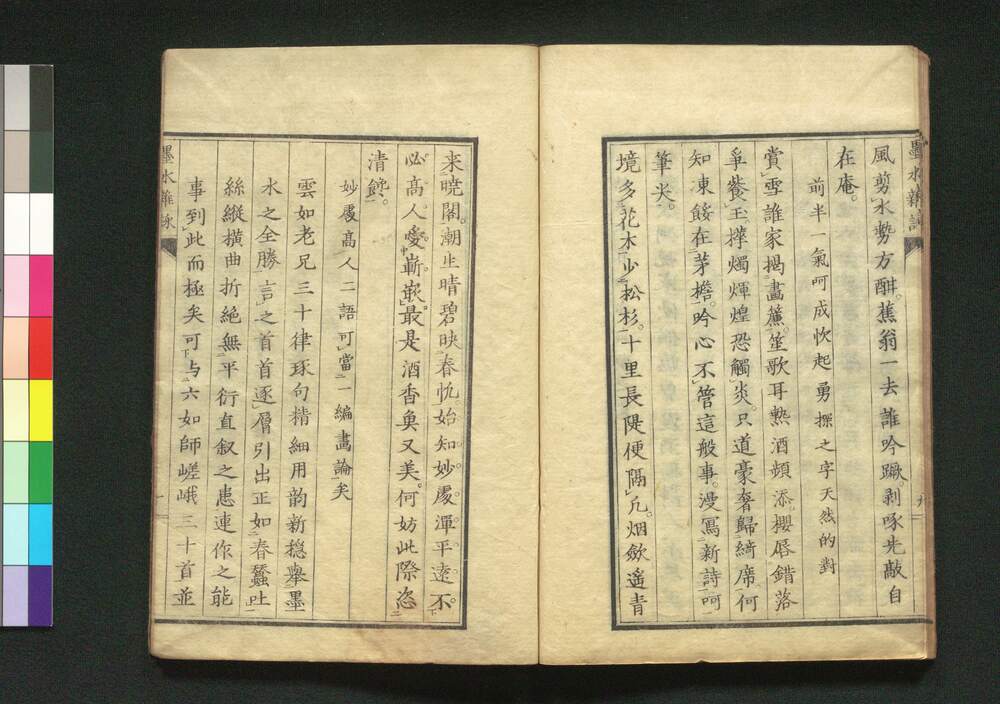 墨水雜詠
風剪水勢方酣蕉翁一去誰吟蹶剥啄先敲自
在庵
前半一氣呵成忺起勇探之字天然的對
賞雪誰家揭畫簾笙歌耳熱酒頻添櫻唇錯落
爭餐玉犖燭煇煌恐觸炎只道豪奢歸綺席何
知凍餒在茅檐吟心不管這般事漫寫新詩呵
筆尖
境多花木少松杉十里長隄便隔凡烟斂遙青
九
來曉閣潮生晴碧映春帆始知妙處渾平遠不
必高人愛嶄嵌最是酒香魚又美何妨此際恣
清饞
妙處高人二語可當一編畫論矣
雲如老兄三十律琢句精細用韵新穩舉墨
水之全勝言之首首逐層引出正如春蠶吐
絲縱橫曲折絶無平衍直叙之患連作之能
事到此而極矣可与六如師嵯峨三十首並
墨水雜詠